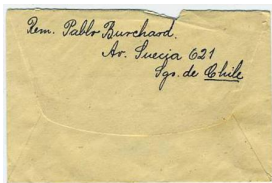 Rem. Pablo Burchard.
Av. Suecia 621
Sgo. de Chile